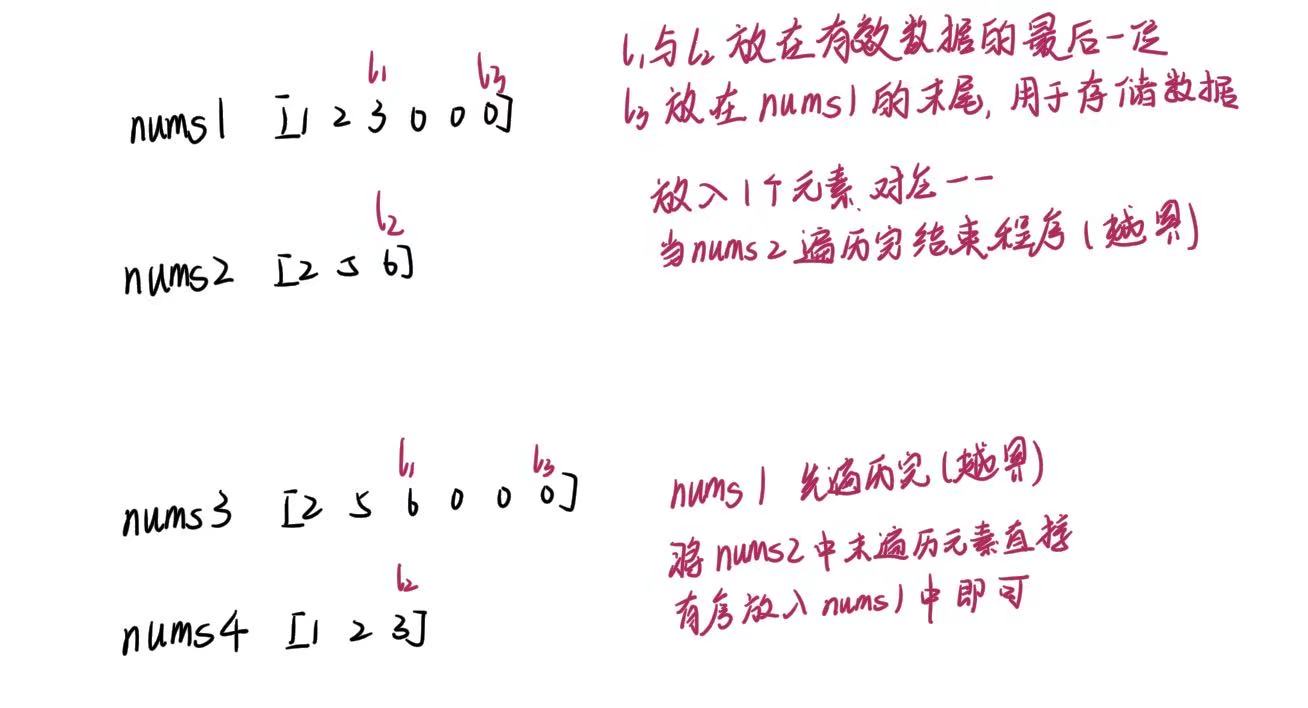 l1 l3
nums1 [1 2 3 0 0 0]
l2
nums2 [2 5 6]
l1与l2 放在有效数据的最后一位
l3 放在nums1的末尾,用于存储数据
放入1个元素,对应--
当nums2遍历完结束程序(越界)
l1 l3
nums3 [2 5 6 0 0 0]
l2
nums4 [1 2 3]
nums1 先遍历完(越界)
将nums2中未遍历元素直接
有序放入nums1中即可